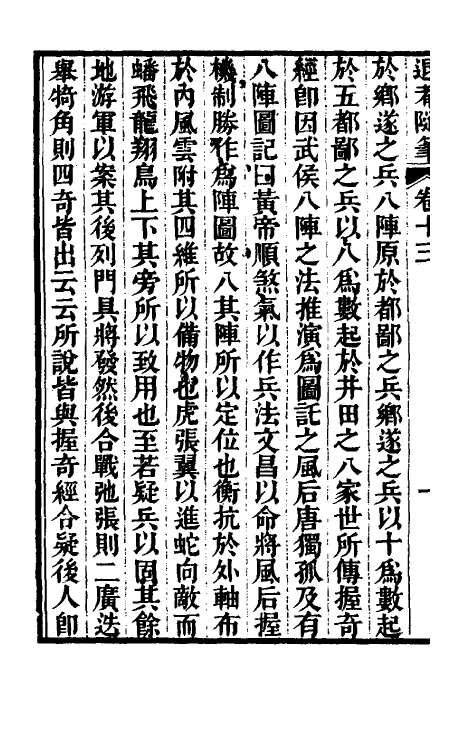 退菴隨筆 卷十三 一
於鄉遂之兵八陣原於都鄙之兵鄉遂之兵以十爲數起
於五都鄙之兵以八爲數起於井田之八家世所傳握奇
經卽因武侯八陣之法推演爲圖託之風后唐獨孤及有
八陣圖記曰黃帝順煞氣以作兵法文昌以命將風后握
機制勝作爲陣圖故八其陣所以定位也衡抗於外軸布
於內風雲附其四維所以備物也虎張翼以進蛇向敵而
蟠飛龍翔鳥上下其旁所以致用也至若疑兵以固其餘
地游軍以案其後列門具將發然後合戰弛張則二廣迭
舉犄角則四奇皆出云云所說皆與握奇經合疑後人卽